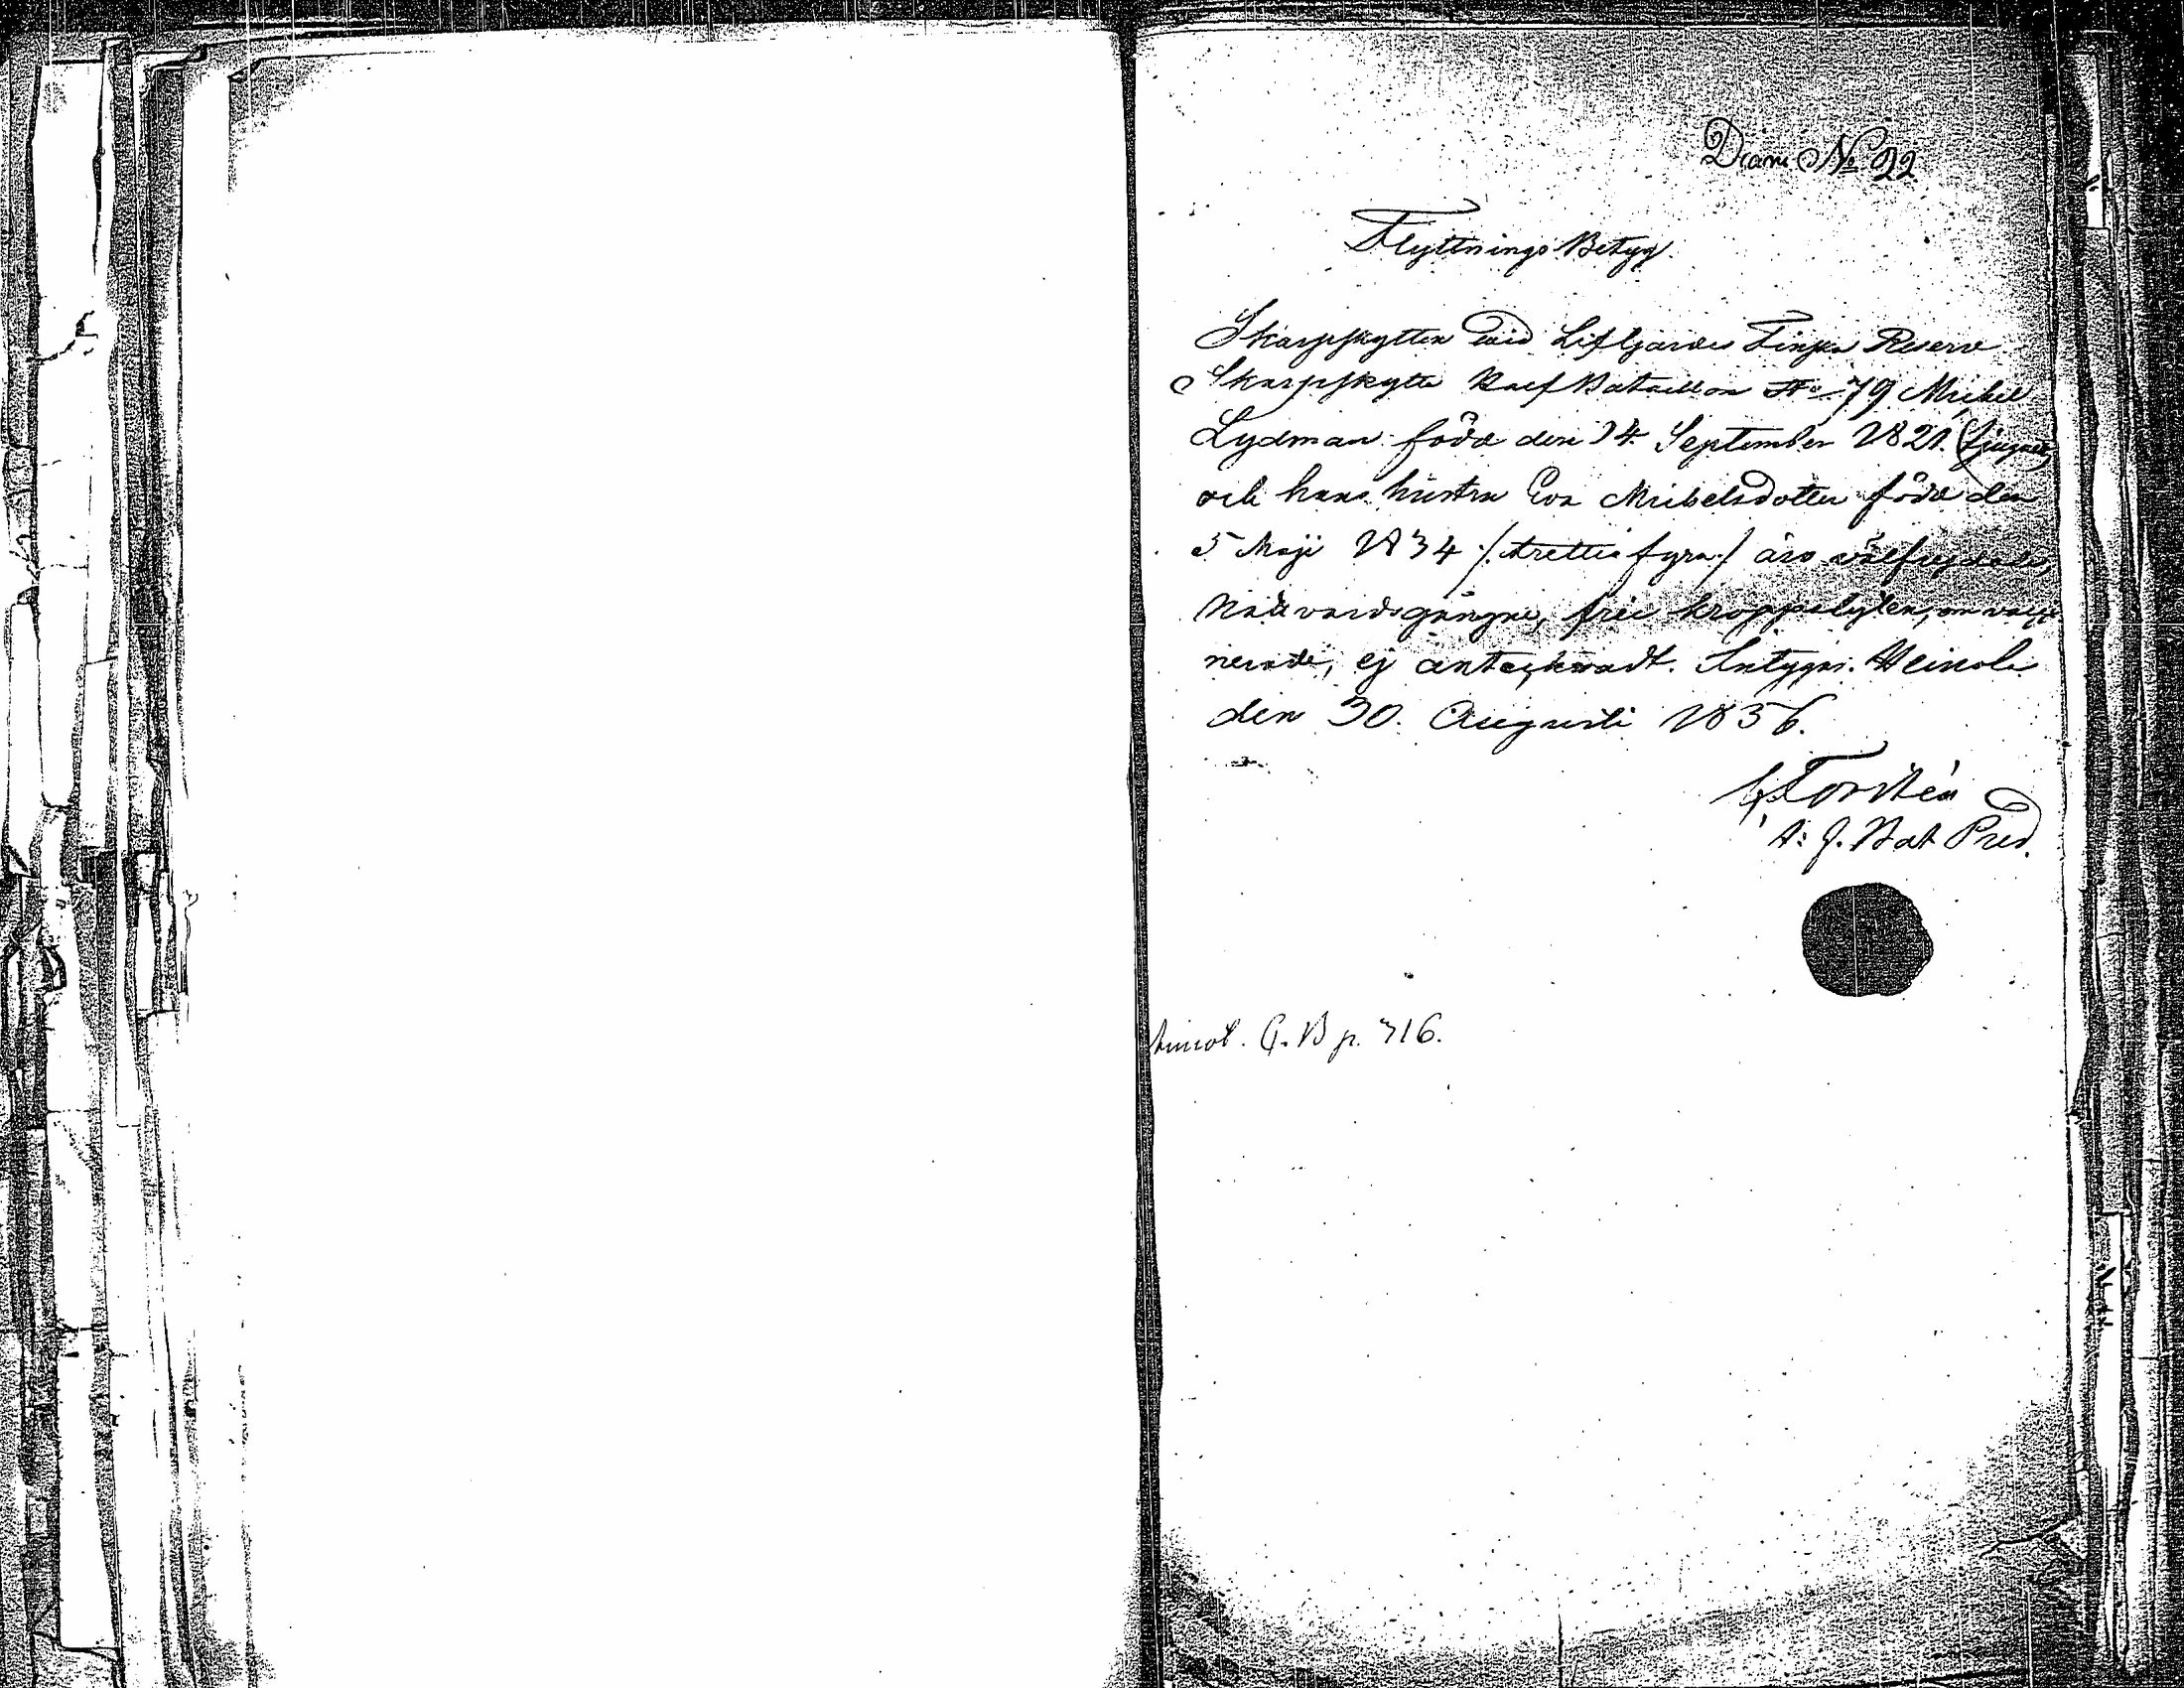 Diarie No 22
Flyttnings Betyg
Skarpskytten Wid Lifgardes Finska Reserv
Skarpskytte Bataillon No 79 Michel
Lydman född den 14 September 1821. (tjuguett)
och hans hustru Eva Michelsdotter född den
5 Maji 1834 /:trettiofyra:/ äro välfrejdade,
Nattvardsgångne, frie kroppslyten, om vacci
nerade, ej antecknadt. Intygar. Heinola
den 30. Augusti 1856.
Forstén
Bat Pred.
p. 716.